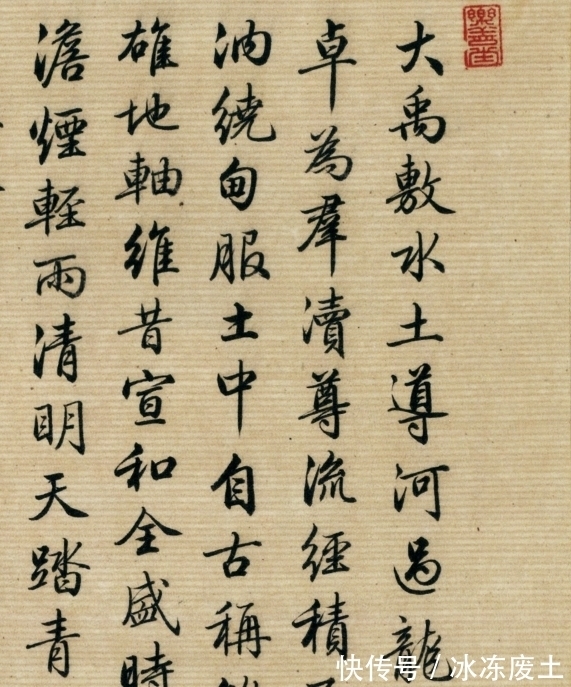 大禹敷水土導河過龍
卓為羣瀆尊流經積
汭繞甸服土中自古稱
雄地軸維昔宣和全盛時
澹煙輕雨清明天踏青
快传号 / 冰冻废土